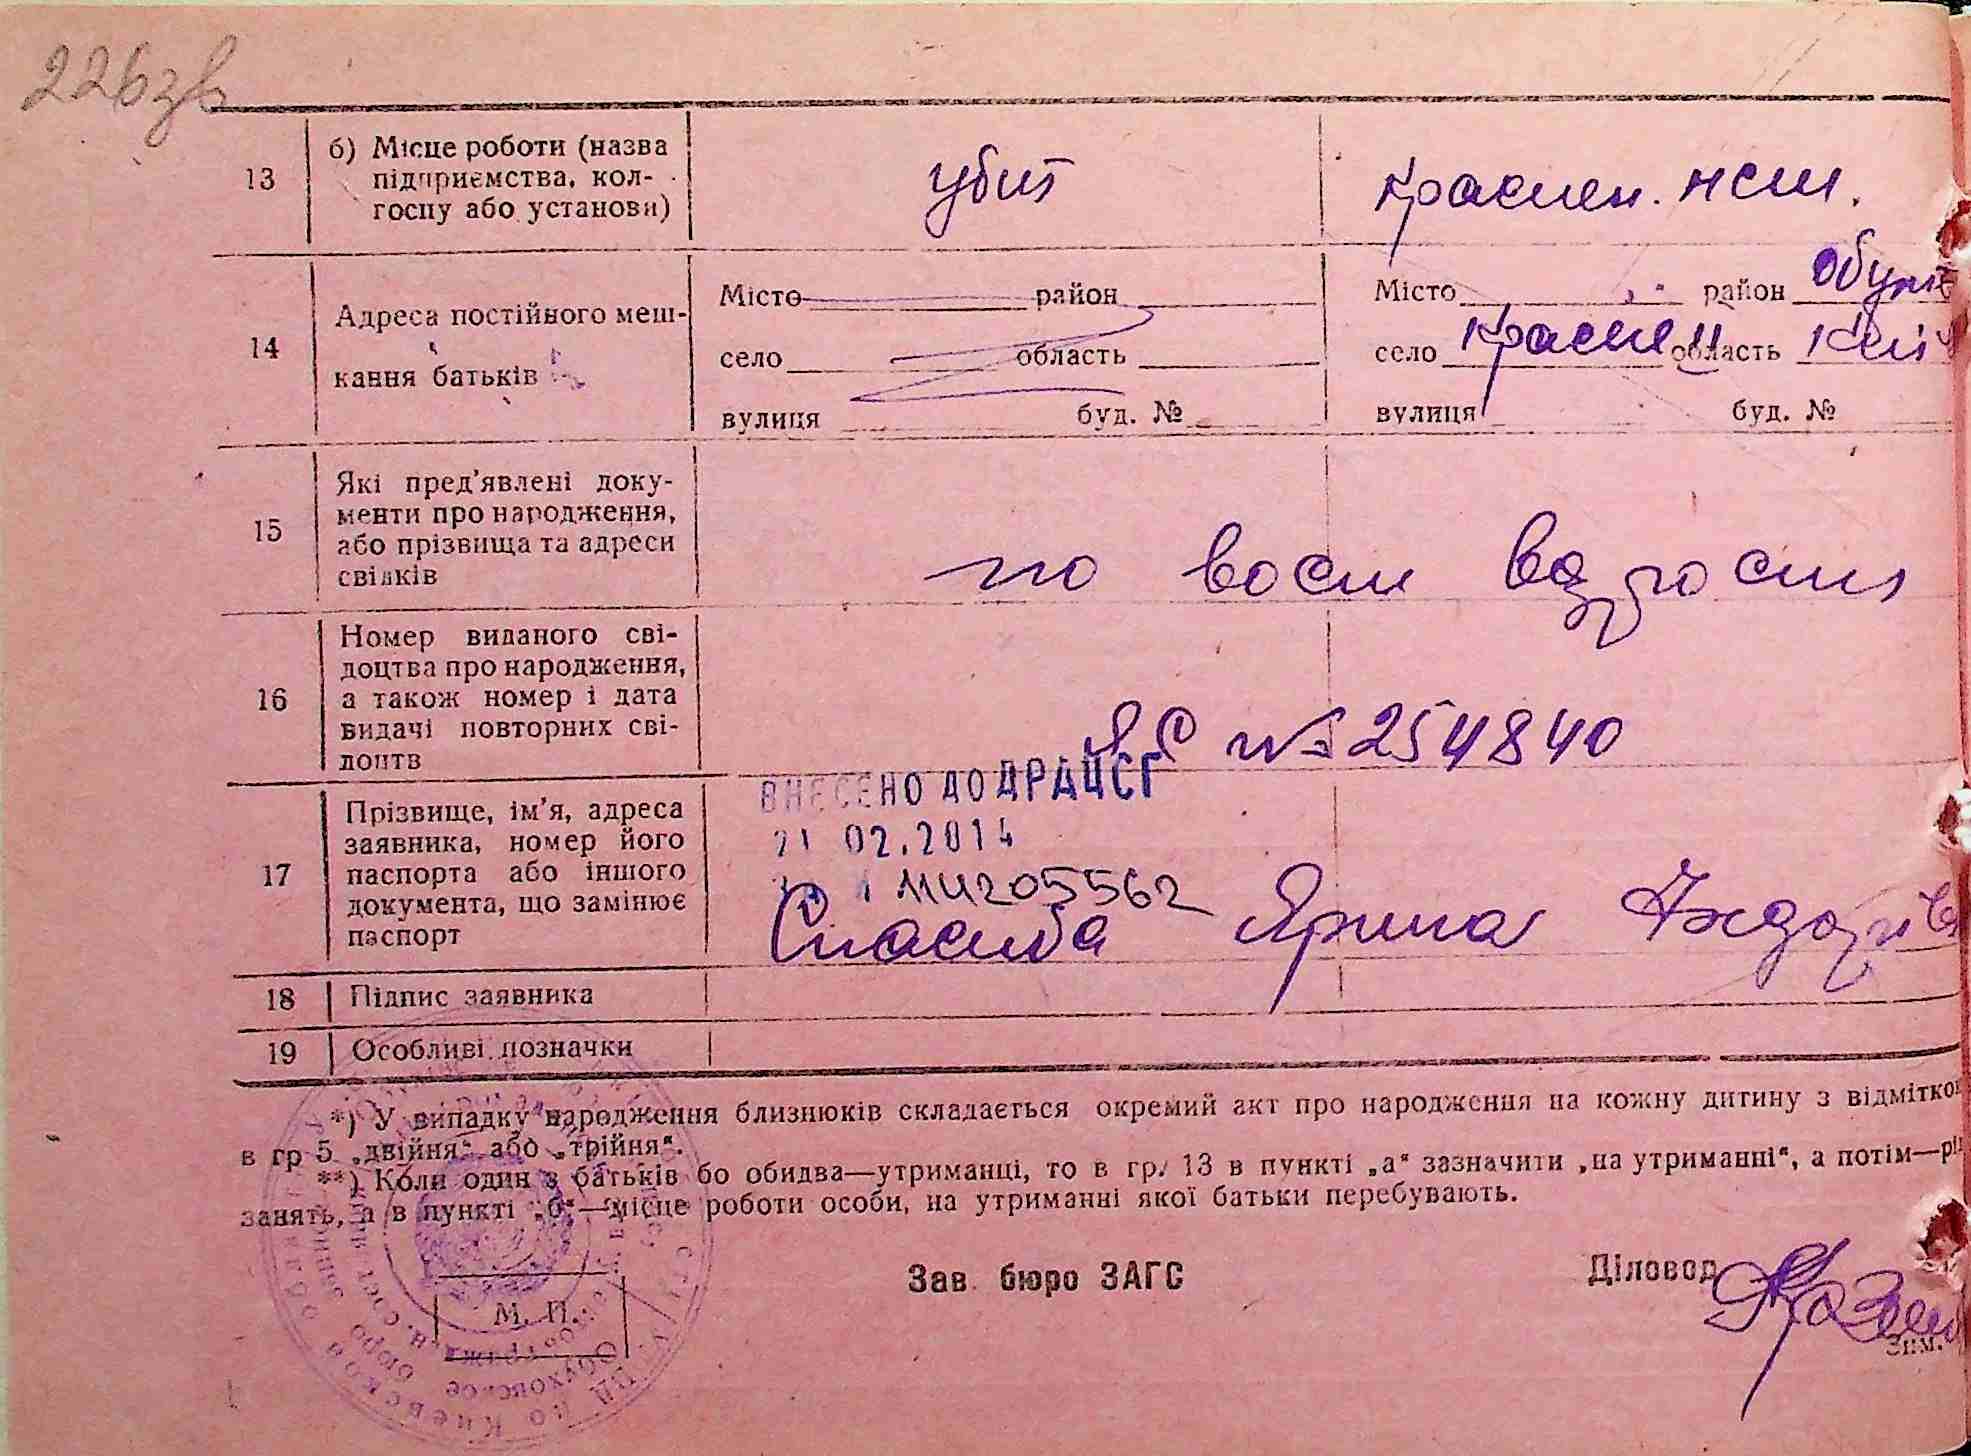 226зв
13
б) Місце роботи (назва
підприємства, кол-
госпу або установи)
убит
14
Адреса постійного меш-
кання батьків
Місто район
село область
вулиця буд. №
Місто район Обух
село область
вулиця буд. №
15
Які пред'явлені доку-
менти про народження,
або прізвища та адреси
свідків
по восст возрасту
16
Номер виданого сві-
доцтва про народження,
а також номер і дата
видачі повторних сві-
доцтв
№ 254840
17
Прізвище, ім'я, адреса
заявника, номер його
паспорта або іншого
документа, що замінює
паспорт
ВНЕСЕНО ДО ДРАЦСГ
21 02.2014
1114205562
Спасиба Ярина
18
Підпис заявника
19
Особливі позначки
*) У випадку народження близнюків складається окремий акт про народження на кожну дитину з відмітко
в гр 5 „двійня“ або „трійня“.
**) Коли один з батьків бо обидва—утриманці, то в гр. 13 в пункті „а“ зазначити „на утриманні“, а потім—рі
занять, а в пункті „б“—місце роботи особи, на утриманні якої батьки перебувають.
Зав. бюро ЗАГС
Діловод
М. П.